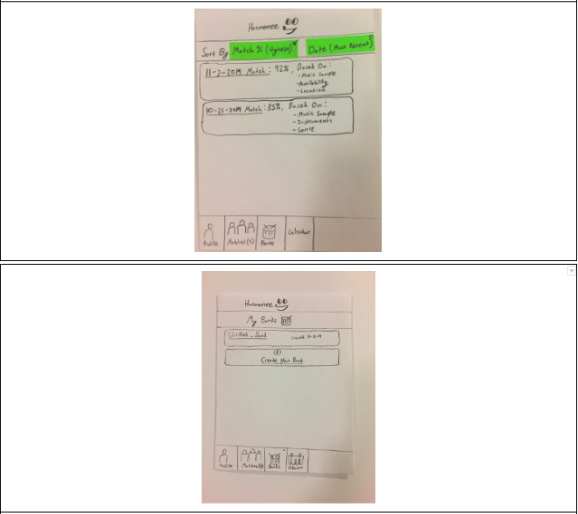 Harmonee
Sort By Match % (Highest) Date (Most Recent)
11-2-2019 Match: 92%, Based On:
- Music Sample
- Availability
- Location
10-21-2019 Match: 85%, Based On:
- Music Sample
- Instruments
- Genre
Profile Matches Bands Calendar
Harmonee
My Bands
Untitled Band Created
Create New Band
Profile Matches Bands